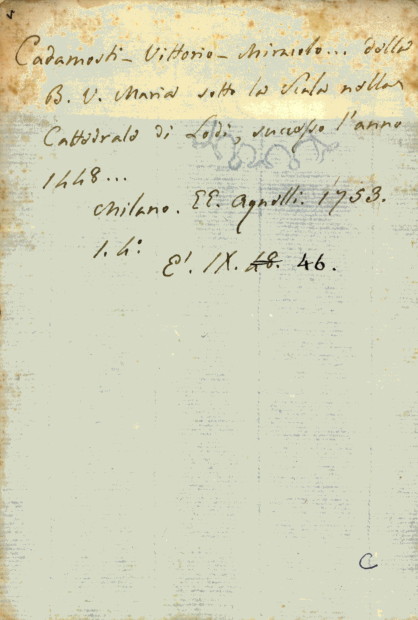 Cadamosti - Vittorio - Miracolo... della
B. V. Maria sotto la Scala nella
Cattedrale di Lodi, successo l'anno
1448...
Milano. EE. Agnelli. 1753.
1. 4°.
E'. IX. 48. 46.
C